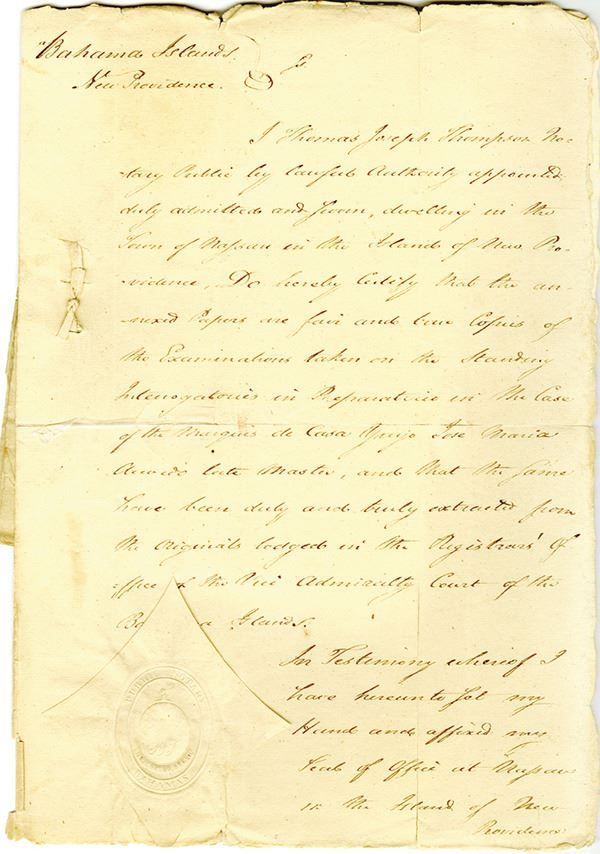 Bahama Islands.
New Providence.
I Thomas Joseph Thompson No-
tary Public by lawful Authority appointed
duly admitted and sworn, dwelling in the
Town of Nassau in the Island of New Pro-
vidence, Do hereby Certify that the an-
nexed Papers are fair and true Copies of
the Examinations taken on the Standing
Interrogatories in Preparatorio in the Case
of the Marquis de Casa Yrujo Jose Maria
late Master, and that the same
have been duly and truly extracted from
the originals lodged in the Registrars' Of
ffice of the Vice Admiralty Court of the
Ba a Islands.
In Testimony whereof I
have hereunto set my
Hand and affixed my
Seal of Office at Nassau
in the Island of New
Providence
BAHAMAS